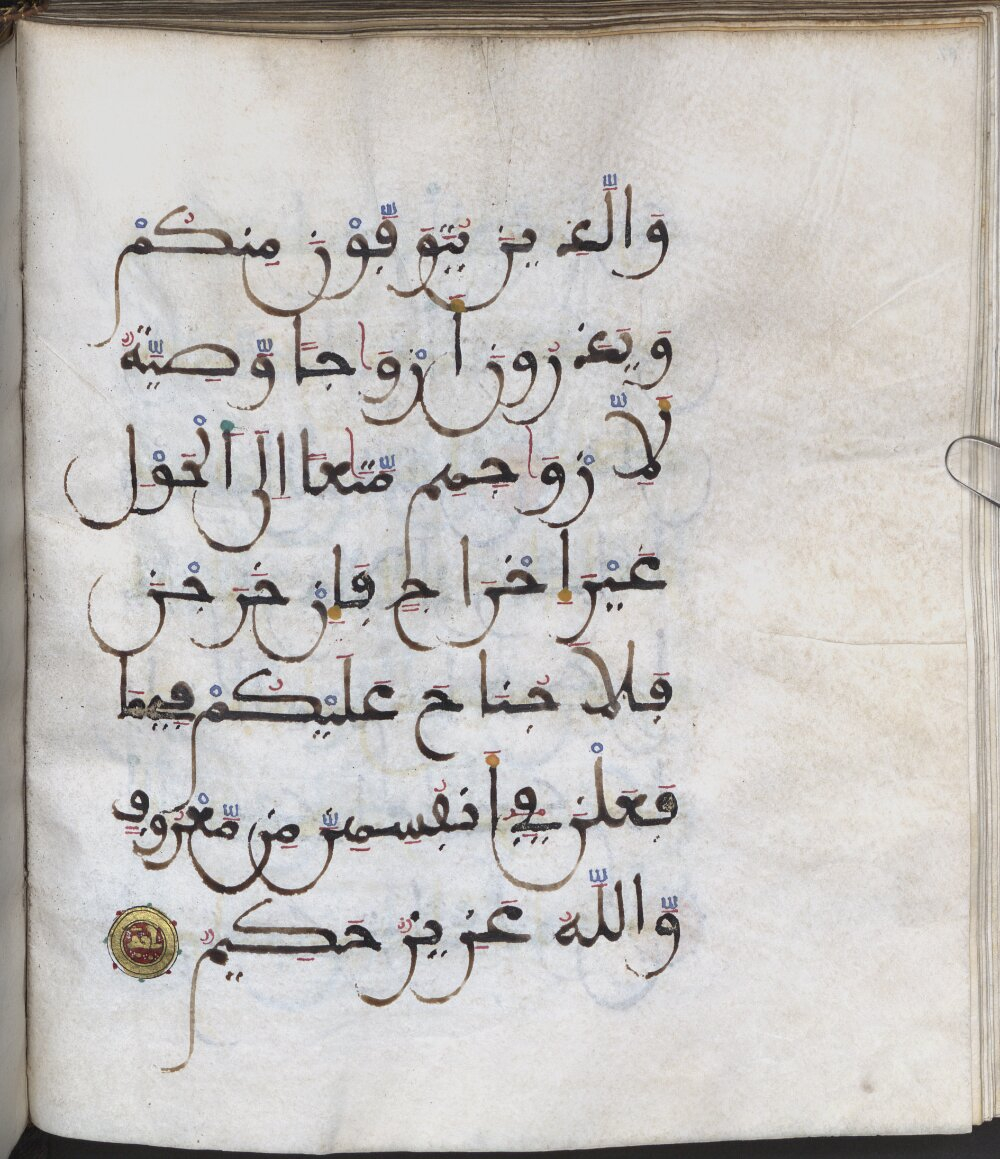 وَالَّذِينَ يُتَوَفَّوْنَ مِنكُمْ
وَيَذَرُونَ أَزْوَٰجًا وَّصِيَّةٌ
لِّأَزْوَٰجِهِم مَّتَٰعًا إِلَى ٱلْحَوْلِ
غَيْرَ إِخْرَاجٍ فَإِنْ خَرَجْنَ
فَلَا جُنَاحَ عَلَيْكُمْ فِيمَا
فَعَلْنَ فِي أَنفُسِهِنَّ مِن مَّعْرُوفٍ
وَّاللَّهُ عَزِيزٌ حَكِيمٌ